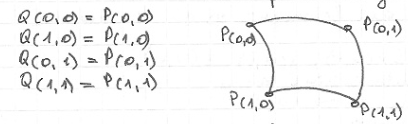 Q(0,0) = P(0,0)
Q(1,0) = P(1,0)
Q(0,1) = P(0,1)
Q(1,1) = P(1,1)
P(0,0)
P(0,1)
P(1,0)
P(1,1)